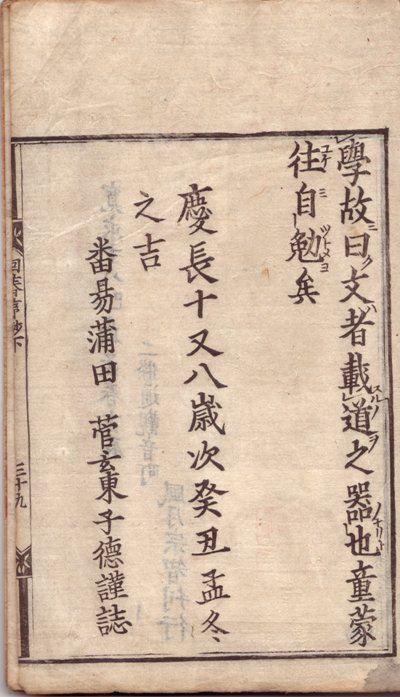 學故曰文者載道之器也童蒙
往自勉矣
慶長十又八歲次癸丑孟冬
之吉
畨昜蒲田 菅玄東子德謹誌
回春序抄下
三十九